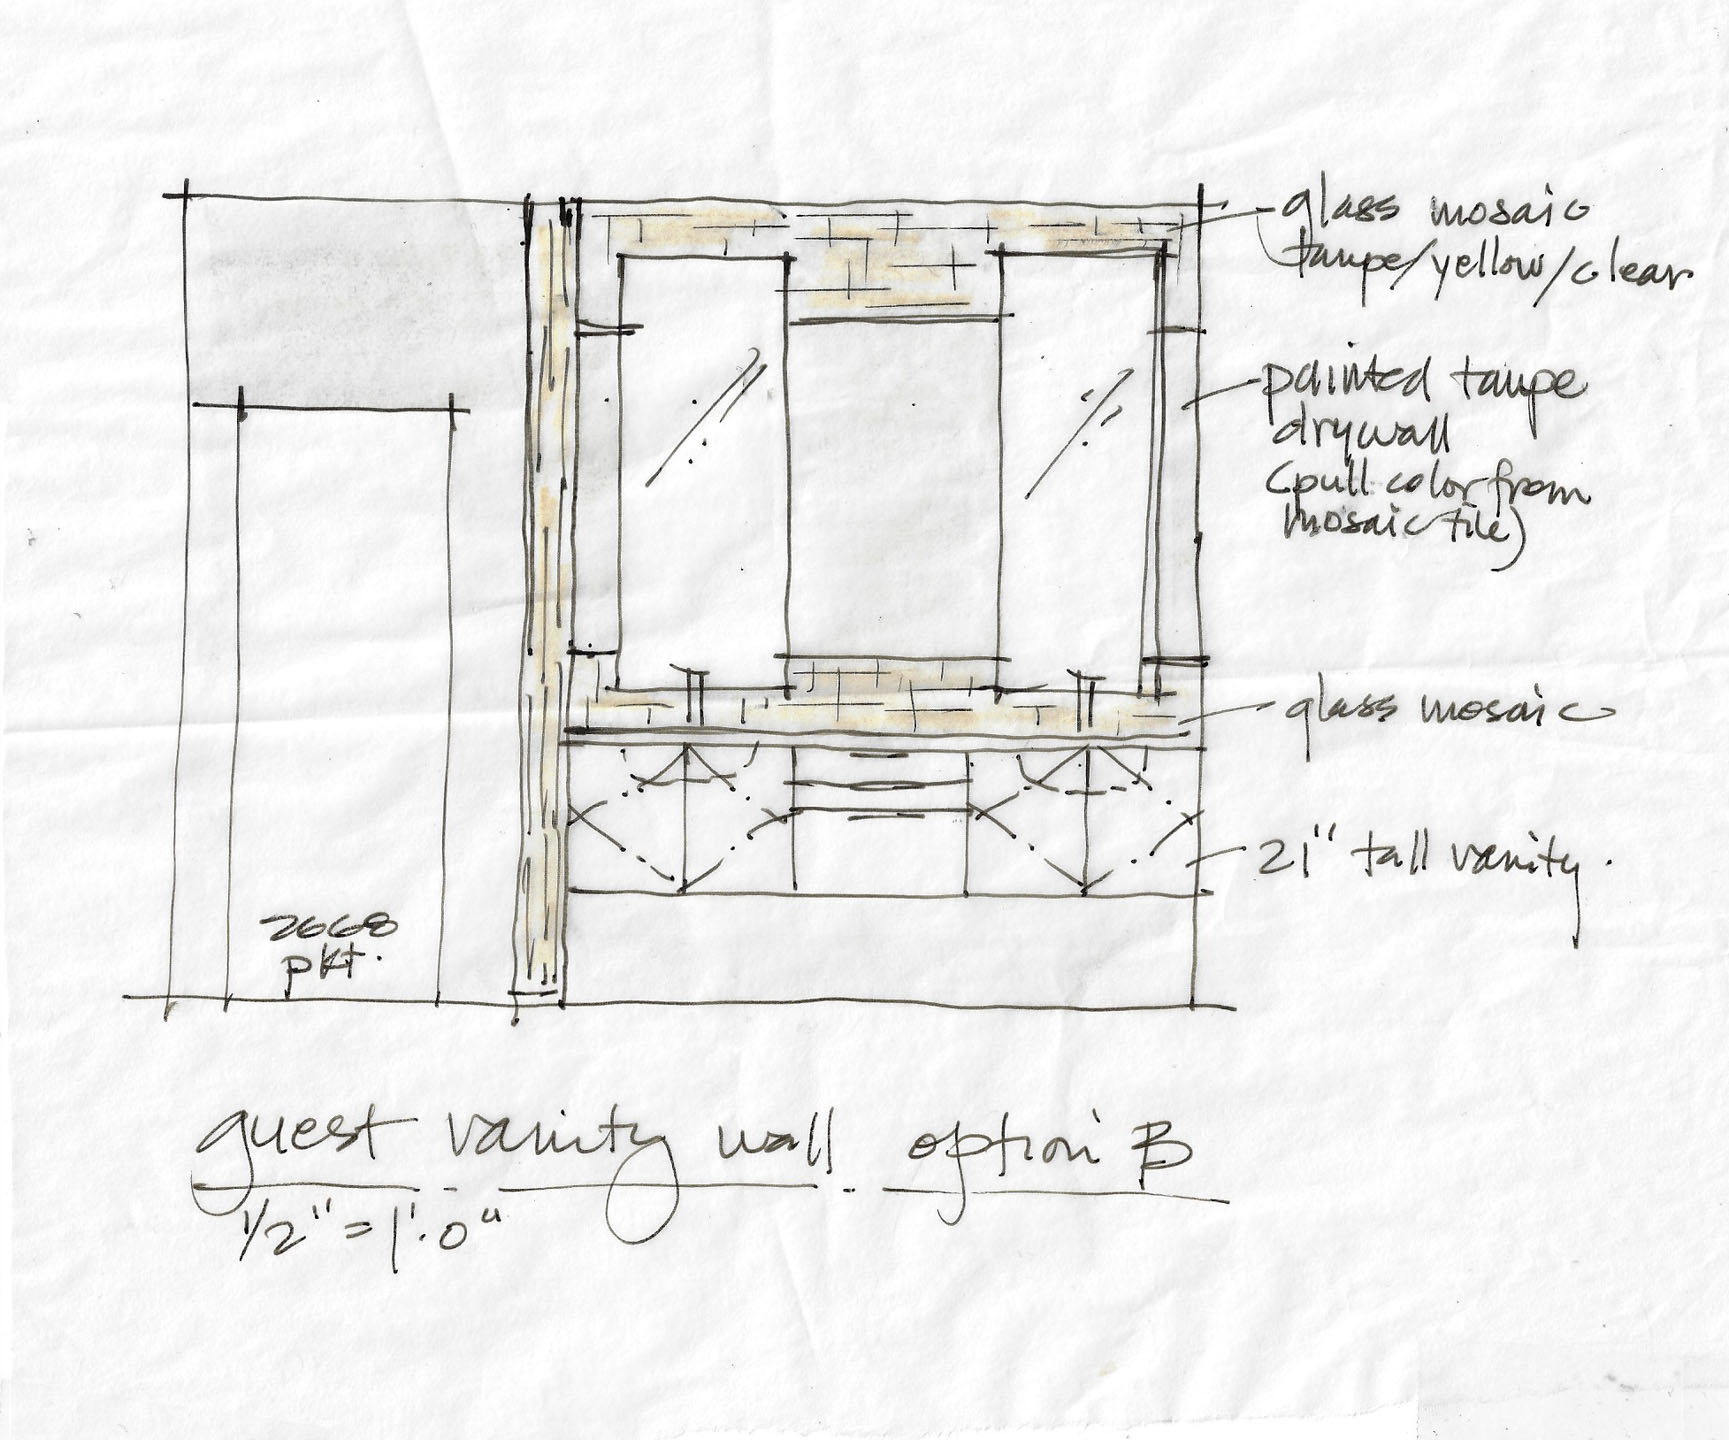 glass mosaic
taupe/yellow/clear
painted taupe
drywall
(pull color from
mosaic tile)
glass mosaic
21" tall vanity.
2668
pkt.
guest vanity wall. option B
1/2" = 1'.0"